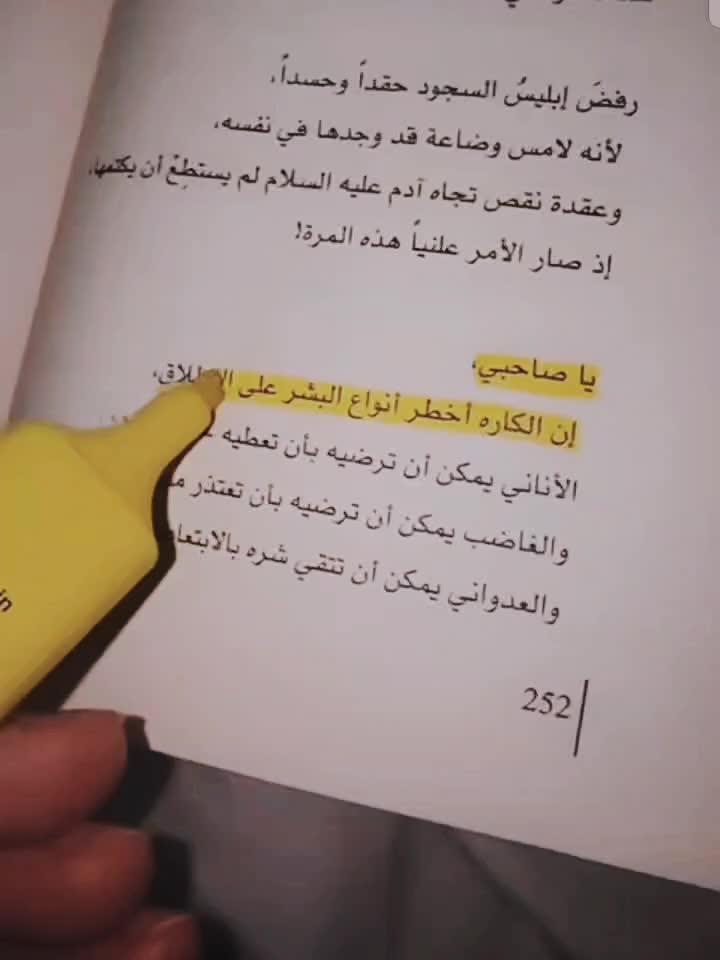 رفضَ إبليسُ السجود حقداً وحسداً،
لأنه لامس وضاعة قد وجدها في نفسه،
وعقدة نقص تجاه آدم عليه السلام لم يستطِعْ أن يكتمها،
إذ صار الأمر علنياً هذه المرة!
يا صاحبي،
إن الكاره أخطر أنواع البشر على
الأناني يمكن أن ترضيه بأن تعطيه
والغاضب يمكن أن ترضيه بأن تعتذر
والعدواني يمكن أن تتقي شره
252